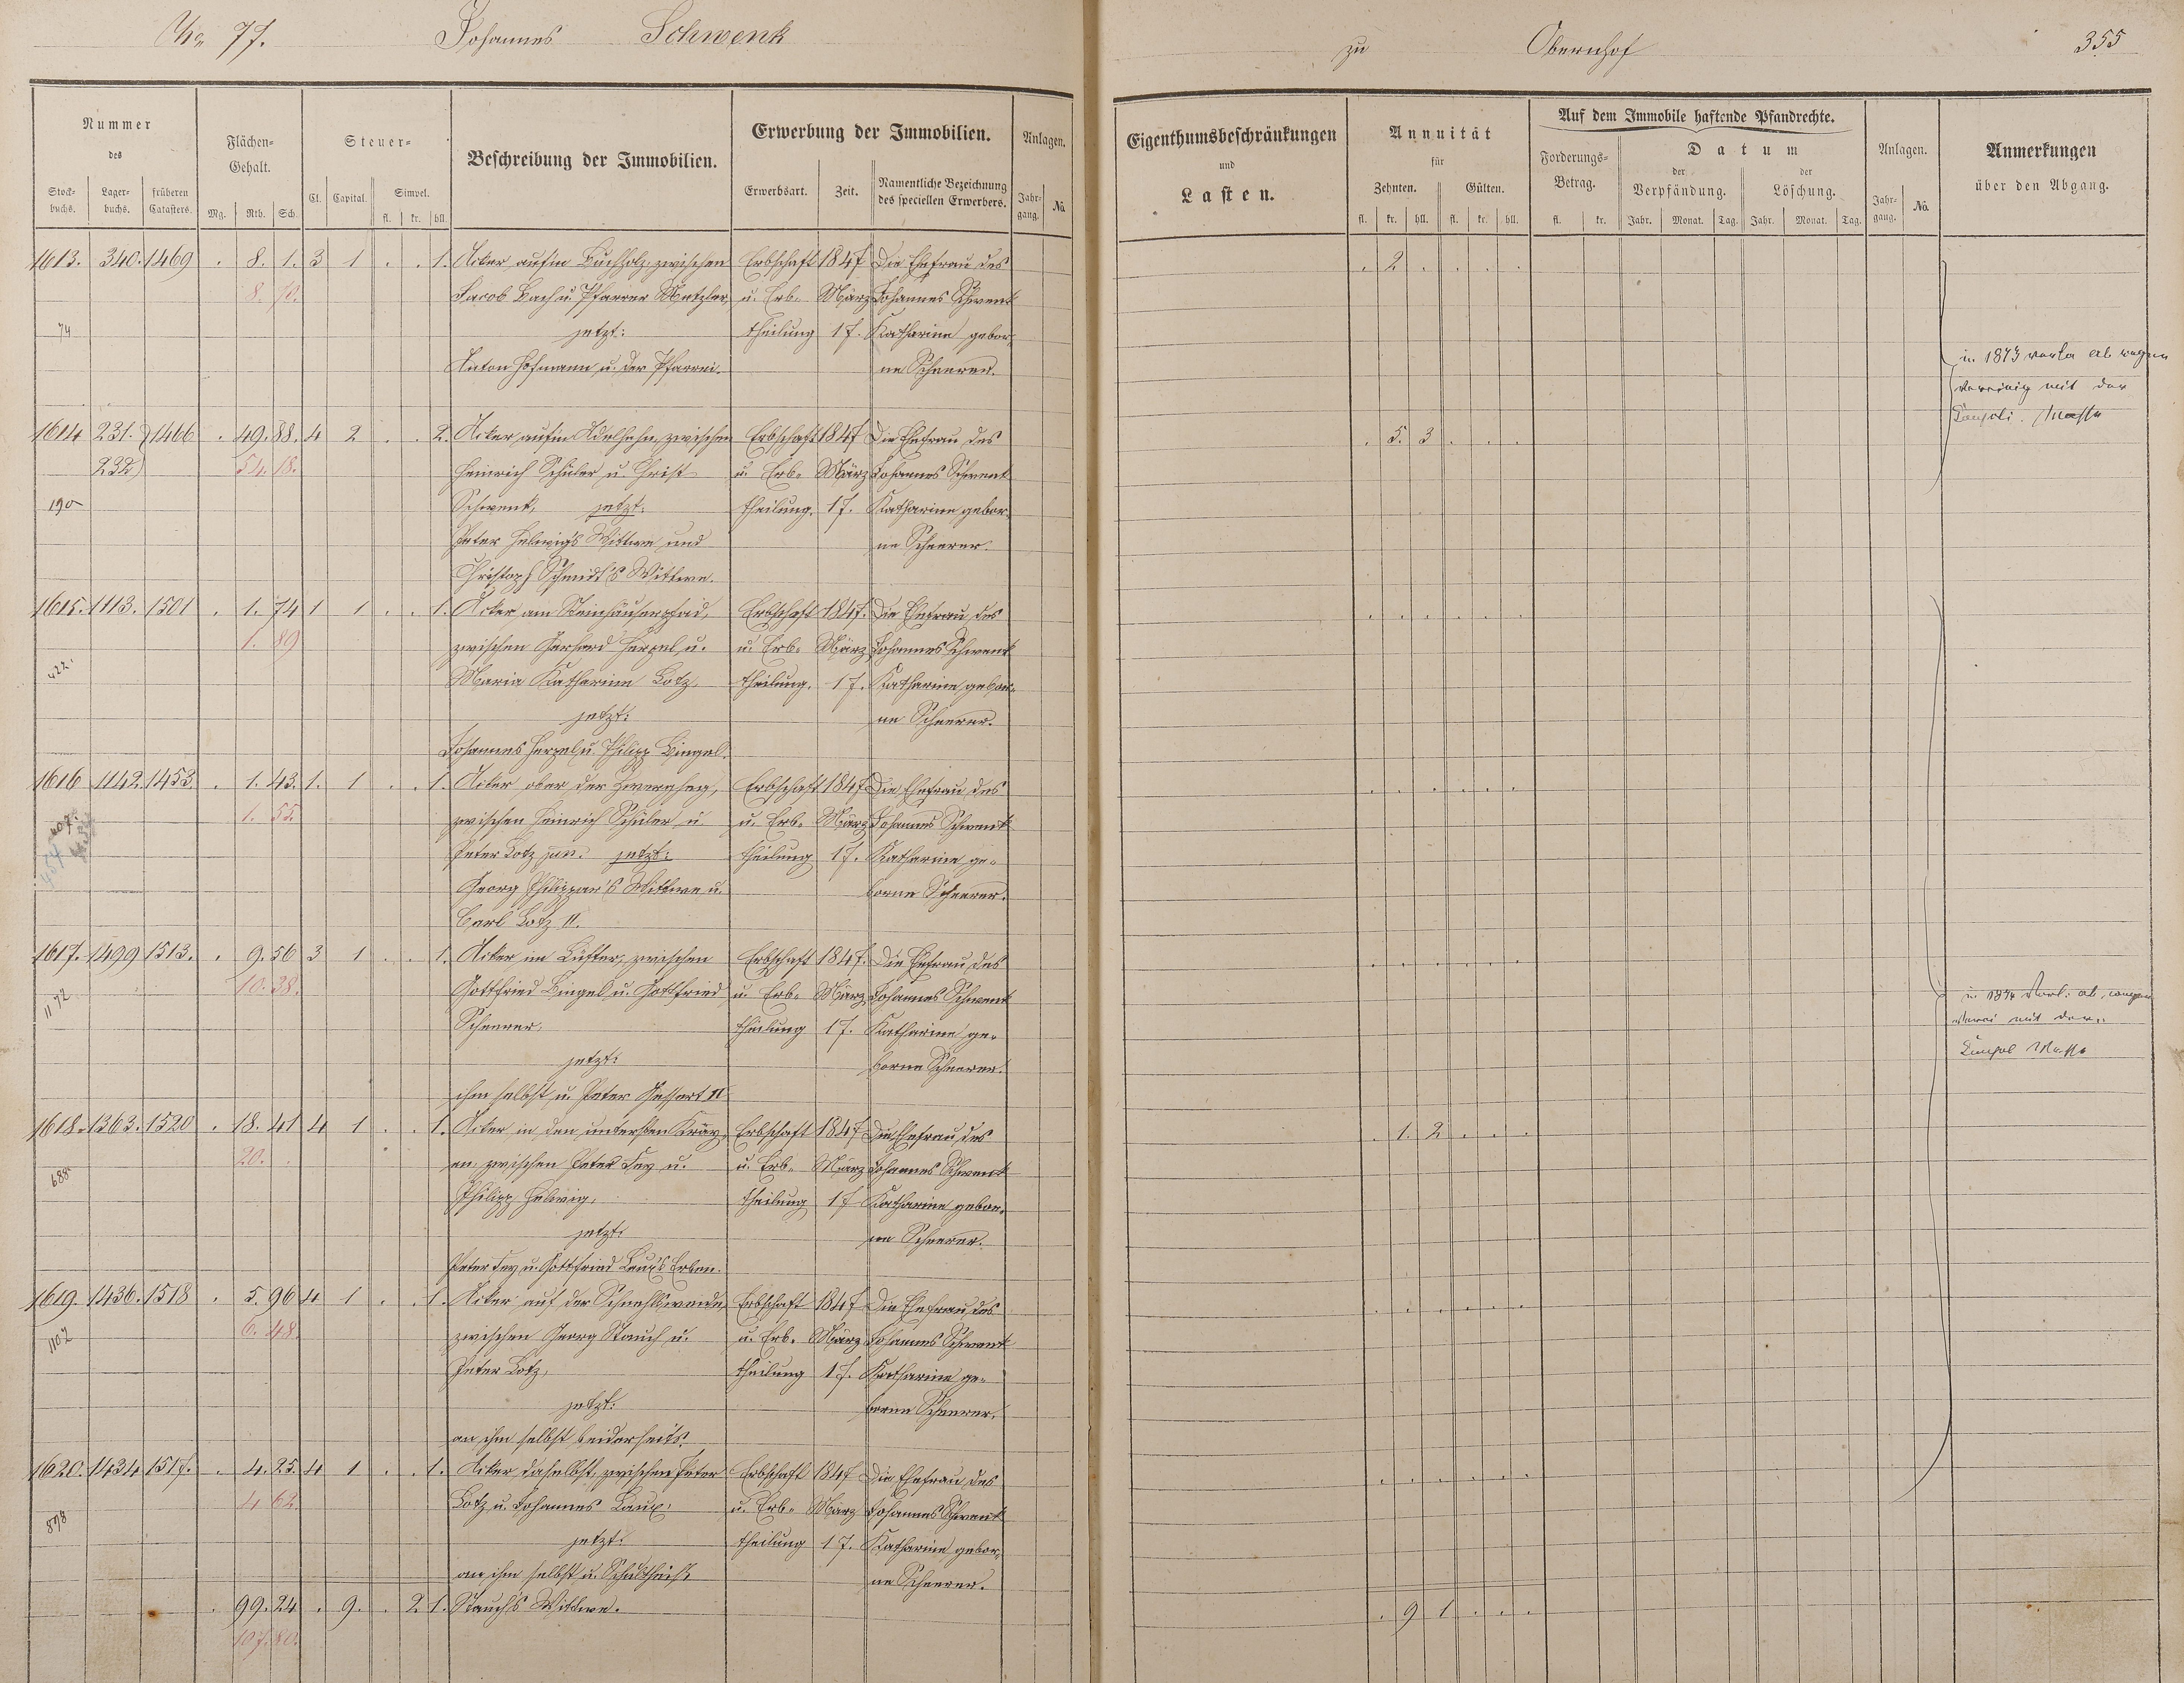 No 77. Johannes Schwenk
zu Obernhof 355
Nummer des
Stockbuchs. Lagerbuchs. früheren Catasters.
Flächen-Gehalt.
Mg. Rth. Sch.
Steuer-
Cl. Capital. Simpel.
fl. kr. hll.
Beschreibung der Immobilien.
Erwerbung der Immobilien.
Erwerbsart. Zeit. Namentliche Bezeichnung des speciellen Erwerbers.
Anlagen.
Jahrgang. No.
Eigenthumsbeschränkungen
und
Lasten.
Annuität
für
Zehnten. Gülten.
fl. kr. hll. fl. kr. hll.
Auf dem Immobile haftende Pfandrechte.
Forderungs-Betrag.
fl. kr.
Datum
der Verpfändung. der Löschung.
Jahr. Monat. Tag. Jahr. Monat. Tag.
Anlagen.
Jahrgang. No.
Anmerkungen
über den Abgang.
1613. 340. 1469 . 8. 1. 3 1 . . 1. Acker aufm Buchholz, zwischen Erbschaft 1847 Die Ehefrau des . 2 . . . .
8. 70. Jacob Bach u. Pfarrer Metzler, u. Erb- März Johannes Schwenk
74 jetzt: theilung 17. Katharine gebor-
Anton Hofmann u. der Pfarrei. ne Scheerer.
in 1873 ab wegen
mit der
Masse
1614 231. 1466 . 49. 88. 4 2 . . 2. Acker aufm zwischen Erbschaft 1847 Die Ehefrau des . 5. 3 . . .
232 54. 18. Heinrich Schüler u. Christ u. Erb- März Johannes Schwenk
190 Schwenk, jetzt: theilung. 17. Katharine gebor-
Peter Helwig's Wittwe und ne Scheerer.
Christoph Schmidt's Wittwe.
1615. 1113. 1501 . 1. 74 1 1 . . 1. Acker am Steinhäuserpfad, Erbschaft 1847. Die Ehefrau des . . . . . .
1. 89 zwischen Gerhard Herpel u. u. Erb- März Johannes Schwenk
422. Maria Katharine Lotz, theilung. 17. Katharine gebor-
jetzt: ne Scheerer.
Johannes Herpel u. Philipp Bingel.
1616 1142 1453. . 1. 43. 1. 1 . . 1. Acker ober der Erbschaft 1847 Die Ehefrau des . . . . . .
1. 55. zwischen Heinrich Schüler u. u. Erb- März Johannes Schwenk
407. Peter Lotz jun. jetzt: theilung 17. Katharine ge-
Georg Philippar's Wittwe u. borne Scheerer.
Carl Lotz II.
1617. 1499 1513. . 9. 56 3 1 . . 1. Acker im zwischen Erbschaft 1847. Die Ehefrau des . . . . . .
10. 38. Gottfried Bingel u. Gottfried u. Erb- März Johannes Schwenk
1172 Scheerer, theilung 17. Katharine ge-
jetzt: borne Scheerer.
ihm selbst u. Peter Gessert II
in 1874 ab, wegen
mit der
Masse
1618. 1363. 1520 . 18. 41 4 1 . . 1. Acker in den untersten Kräy- Erbschaft 1847 Die Ehefrau des . 1. 2 . . .
20. . en, zwischen Peter Fey u. u. Erb- März Johannes Schwenk
688 Philipp Helwig, theilung 17 Katharine gebor-
jetzt: ne Scheerer.
Peter Fey u. Gottfried Laux's Erben.
1619. 1436. 1518 . 5. 96 4 1 . . 1. Acker auf der Erbschaft 1847 Die Ehefrau des . . . . . .
6. 48. zwischen Georg Stauch u. u. Erb- März Johannes Schwenk
1102 Peter Lotz, theilung 17. Katharine ge-
jetzt: borne Scheerer.
an ihm selbst beiderseits.
1620. 1434 1517. . 4. 25. 4 1 . . 1. Acker daselbst, zwischen Peter Erbschaft 1847 Die Ehefrau des . . . . . .
4 62. Lotz u. Johannes Laux, u. Erb- März Johannes Schwenk
898 jetzt: theilung 17. Katharine gebor-
an ihm selbst u. Schultheiß ne Scheerer.
. 99. 24 . 9. . 2 1. Stauch's Wittwe. . 9 1 . . .
107. 80.